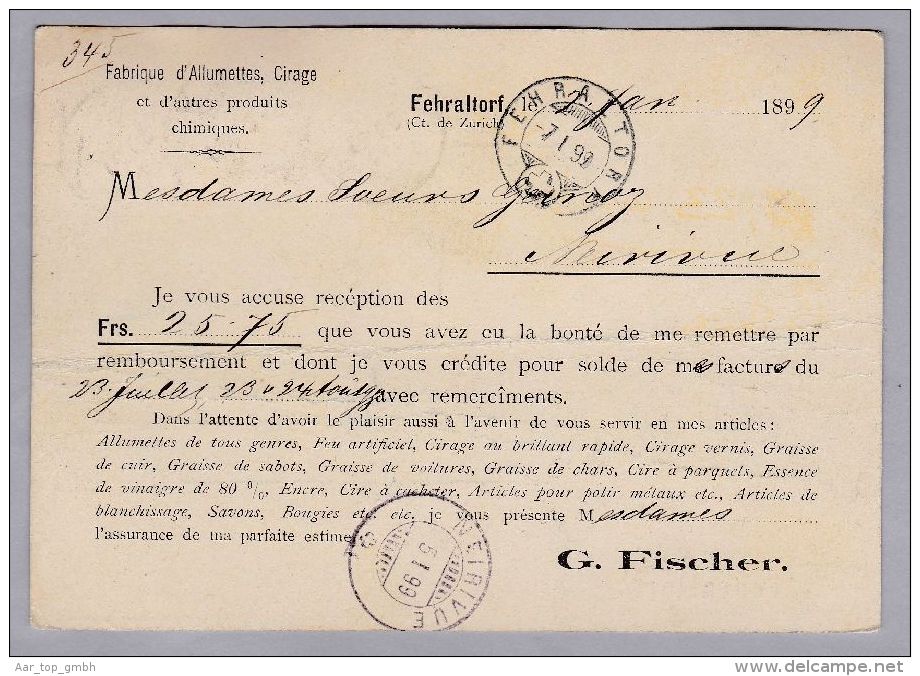 345
Fabrique d'Allumettes, Cirage
et d'autres produits
chimiques.
Fehraltorf, le Jan 1899
(Ct. de Zurich)
FEHRALTORF
-7.I.99
Mesdames Soeurs
Neirivue
Je vous accuse recéption des
Frs. 25.75 que vous avez eu la bonté de me remettre par
remboursement et dont je vous crédite pour solde de mes factures du
23. Juillet 23 & 24 avec remercîments.
Dans l'attente d'avoir le plaisir aussi à l'avenir de vous servir en mes articles:
Allumettes de tous genres, Feu artificiel, Cirage au brillant rapide, Cirage vernis, Graisse
de cuir, Graisse de sabots, Graisse de voitures, Graisse de chars, Cire à parquets, Essence
de vinaigre de 80 %, Encre, Cire à cacheter, Articles pour polir métaux etc., Articles de
blanchissage, Savons, Bougies etc. etc. je vous présente Mesdames
l'assurance de ma parfaite estime.
G. Fischer.
NEIRIVUE
5.I.99
Aar_top_gmbh
delcampe.net